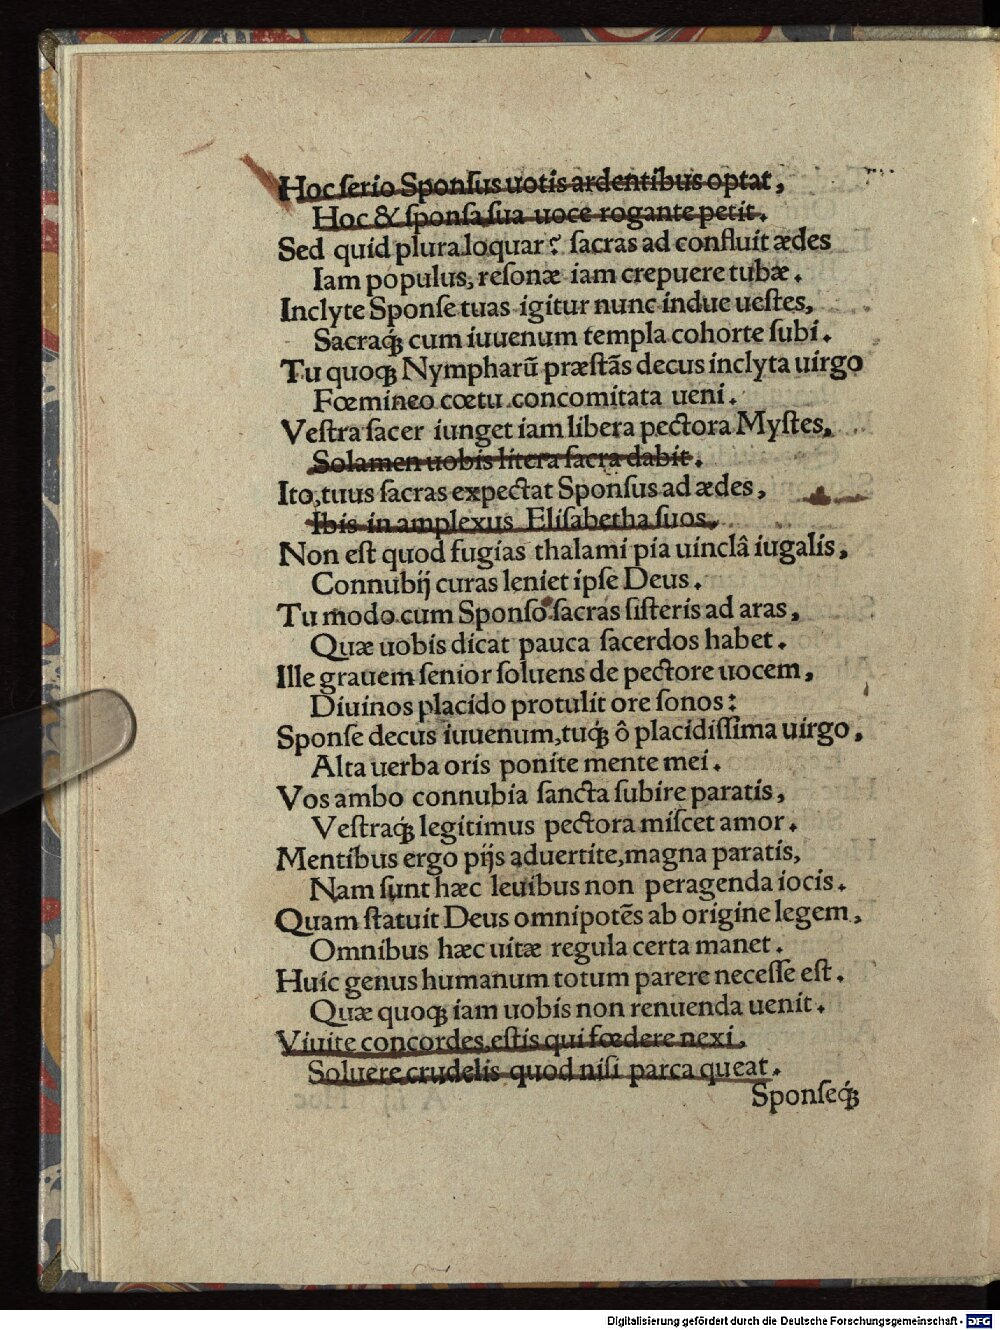 Hoc ſerio Sponſus uotis ardentibus optat,
Hoc & ſponſa ſua uoce rogante petit.
Sed quid plura loquar? ſacras ad confluit ædes
Iam populus, reſonæ iam crepuere tubæ.
Inclyte Sponſe tuas igitur nunc indue ueſtes,
Sacraq́; cum iuuenum templa cohorte ſubi.
Tu quoq; Nympharū præſtās decus inclyta uirgo
Fœmineo cœtu concomitata ueni.
Veſtra ſacer iunget iam libera pectora Myſtes,
Solamen uobis litera ſacra dabit.
Ito, tuus ſacras expectat Sponſus ad ædes,
Ibis in amplexus Eliſabetha ſuos.
Non eſt quod fugias thalami pia uinclâ iugalis,
Connubij curas leniet ipſe Deus.
Tu modo cum Sponſo ſacras ſiſteris ad aras,
Quæ uobis dicat pauca ſacerdos habet.
Ille grauem ſenior ſoluens de pectore uocem,
Diuinos placido protulit ore ſonos:
Sponſe decus iuuenum, tuq́; ô placidiſſima uirgo,
Alta uerba oris ponite mente mei.
Vos ambo connubia ſancta ſubire paratis,
Veſtraq́; legitimus pectora miſcet amor.
Mentibus ergo pijs aduertite, magna paratis,
Nam ſunt hæc leuibus non peragenda iocis.
Quam ſtatuit Deus omnipotēs ab origine legem,
Omnibus hæc uitæ regula certa manet.
Huic genus humanum totum parere neceſſe eſt.
Quæ quoq; iam uobis non renuenda uenit.
Viuite concordes, eſtis qui fœdere nexi,
Soluere crudelis quod niſi parca queat.
Sponſeq́;
Digitalisierung gefördert durch die Deutsche Forschungsgemeinschaft - DFG